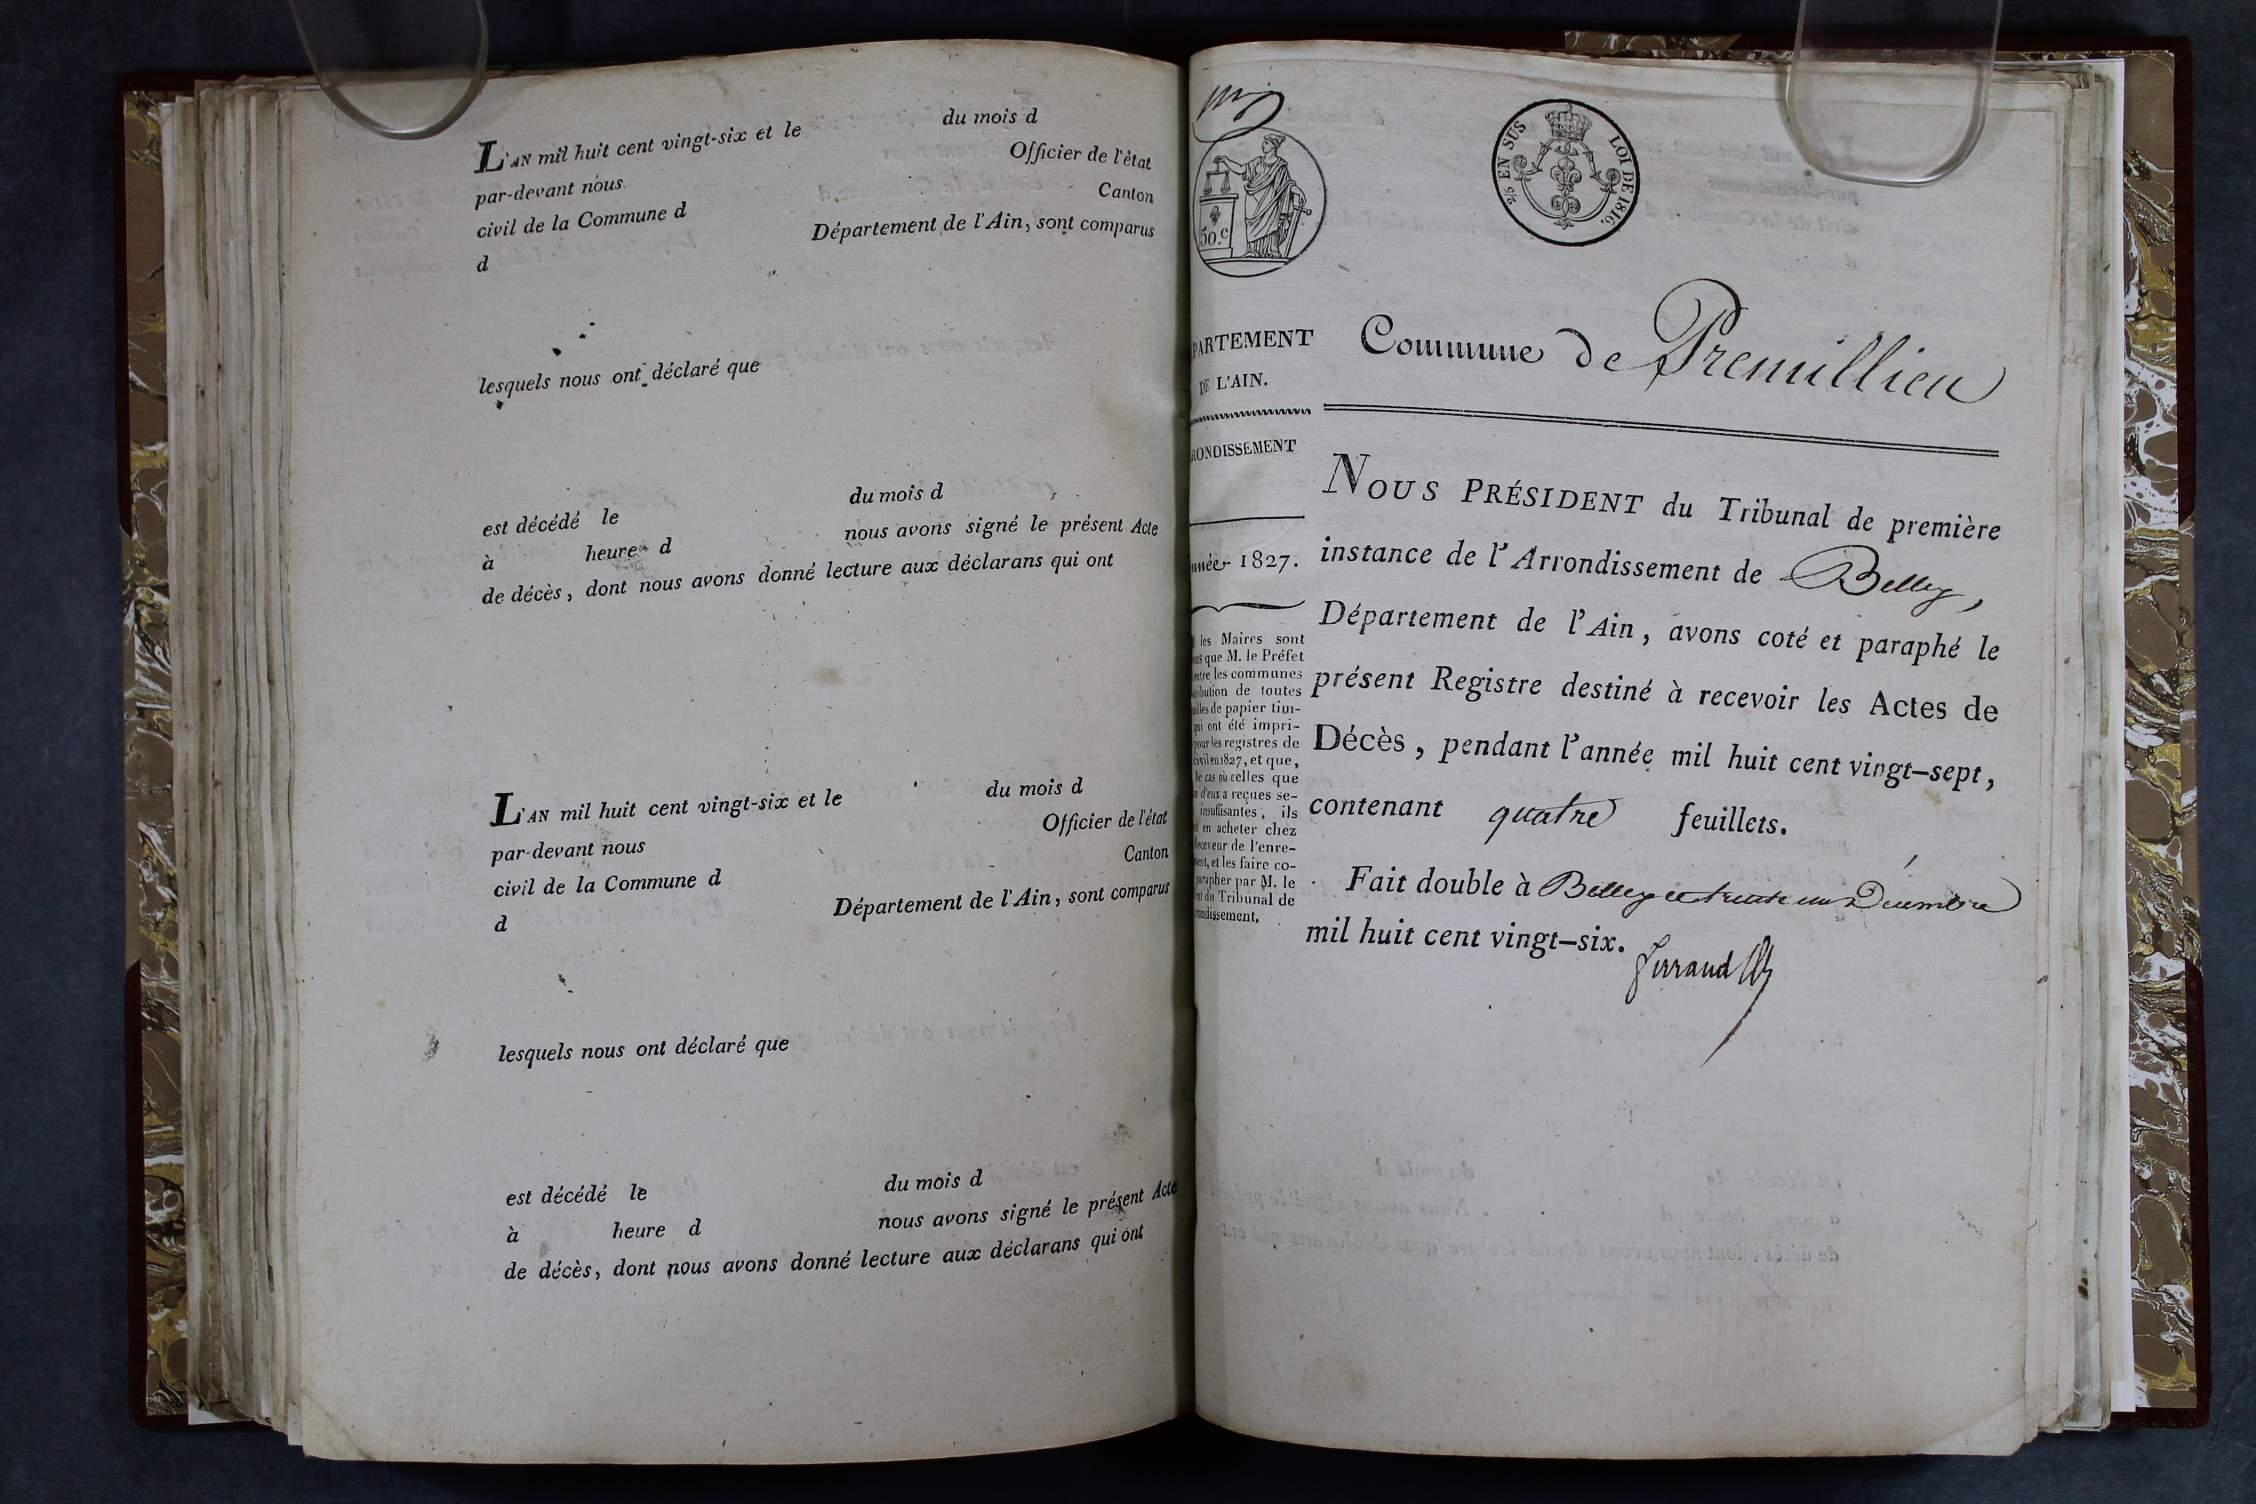 L'AN mil huit cent vingt-six et le du mois d
par-devant nous Officier de l'état
civil de la Commune d Canton
d Département de l'Ain, sont comparus
lesquels nous ont déclaré que
est décédé le du mois d
à heure d nous avons signé le présent Acte
de décès, dont nous avons donné lecture aux déclarans qui ont
L'AN mil huit cent vingt-six et le du mois d
par-devant nous Officier de l'état
civil de la Commune d Canton
d Département de l'Ain, sont comparus
lesquels nous ont déclaré que
est décédé le du mois d
à heure d nous avons signé le présent Acte
de décès, dont nous avons donné lecture aux déclarans qui ont
50.c
2/5 EN SUS LOI DE 1816.
PARTEMENT
DE L'AIN.
RONDISSEMENT
nnée 1827.
les Maires sont
que M. le Préfet
entre les communes
ibution de toutes
illes de papier tim-
qui ont été impri-
pour les registres de
civil en 1827, et que,
le cas où celles que
d'eux a reçues se-
insuffisantes, ils
en acheter chez
Receveur de l'enre-
ment, et les faire co-
parapher par M. le
ent du Tribunal de
rondissement.
Commune de Premillieu
NOUS PRÉSIDENT du Tribunal de première
instance de l'Arrondissement de Belley,
Département de l'Ain, avons coté et paraphé le
présent Registre destiné à recevoir les Actes de
Décès, pendant l'année mil huit cent vingt-sept,
contenant quatre feuillets.
Fait double à Belley le trente un Décembre
mil huit cent vingt-six.